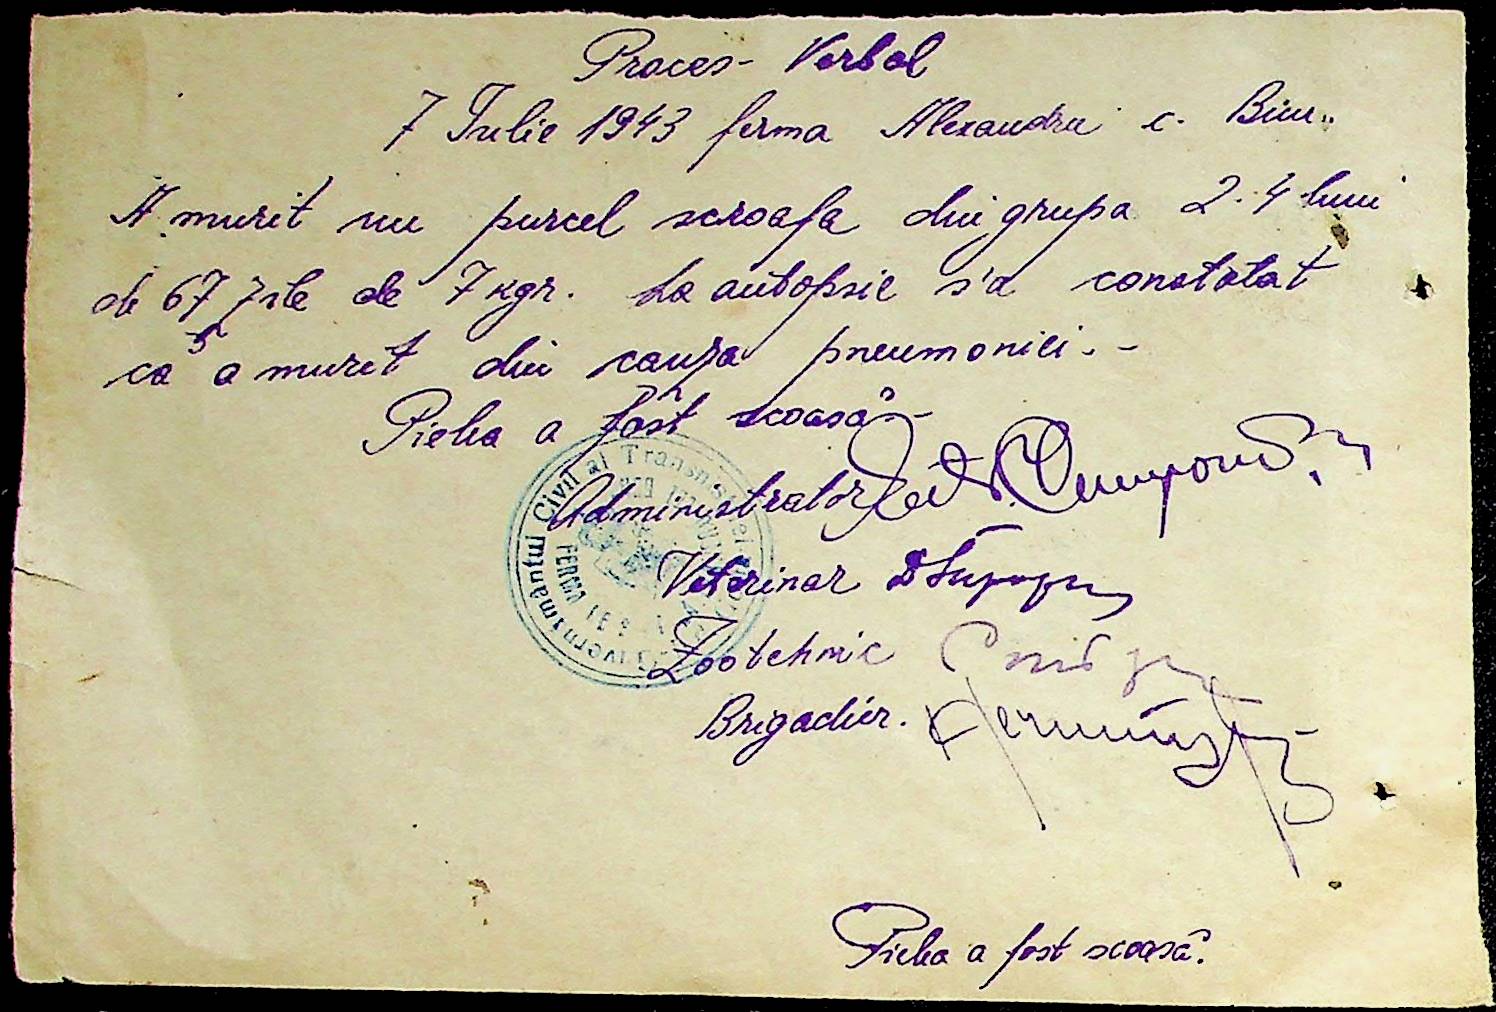 Proces- Verbal
7 Iulie 1943 ferma Alexandru c. Biu..
A murit un purcel scroafa din grupa 2-4 luni
de 67 zile de 7 kgr. La autopsie s'a constatat
că a murit din cauza pneumoniei.-
Pielea a fost scoasă-
Administrator
Veterinar
Zootehnic
Brigadier.
Guvernământul Civil al Transnistriei
FERMA
Pielea a fost scoasă.